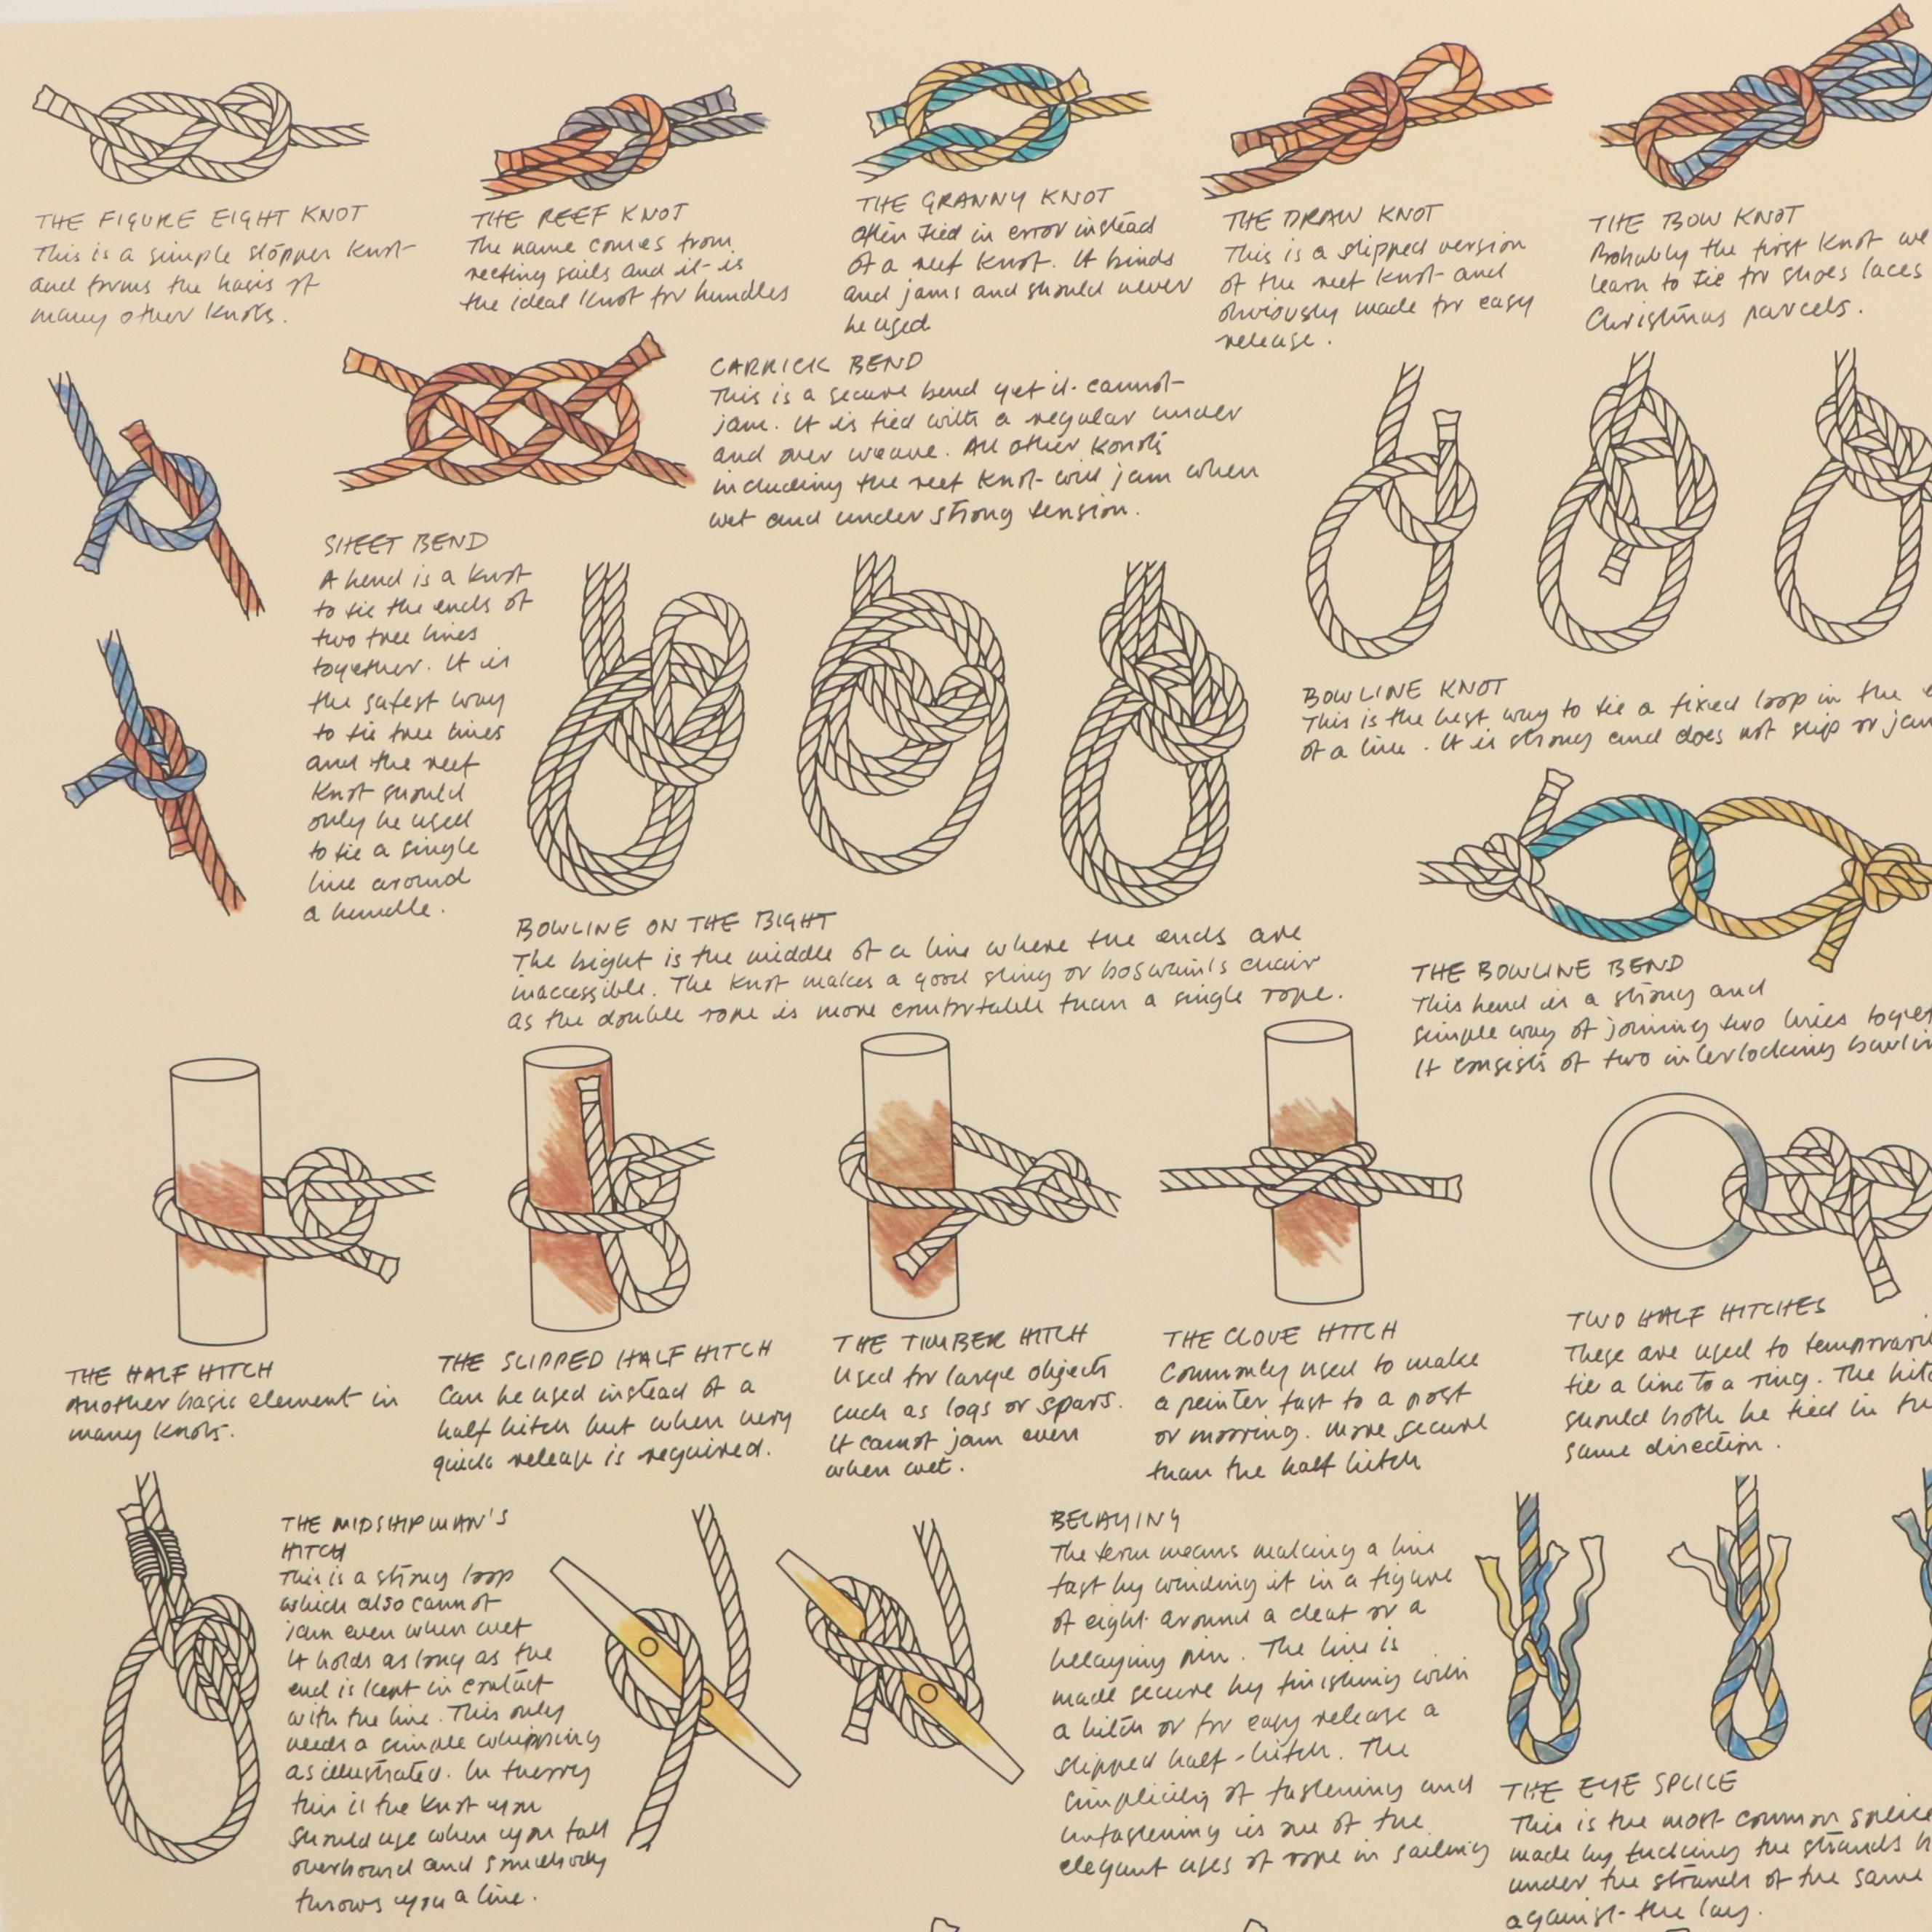 THE FIGURE EIGHT KNOT
This is a simple stopper knot
and forms the basis of
many other knots.
THE REEF KNOT
The name comes from
reefing sails and it is
the ideal knot for bundles
THE GRANNY KNOT
often tied in error instead
of a reef knot. It binds
and jams and should never
be used
THE DRAW KNOT
This is a slipped version
of the reef knot and
obviously made for easy
release.
THE BOW KNOT
Probably the first knot we
learn to tie for shoes laces
Christmas parcels.
CARRICK BEND
This is a secure bend yet it cannot
jam. It is tied with a regular under
and over weave. All other
including the reef knot will jam when
wet and under strong tension.
SHEET BEND
A bend is a knot
to tie the ends of
two free lines
together. It is
the safest way
to tie free lines
and the reef
knot should
only be used
to tie a single
line around
a bundle.
BOWLINE KNOT
This is the best way to tie a fixed loop in the
of a line. It is strong and does not slip or jam
BOWLINE ON THE BIGHT
The bight is the middle of a line where the ends are
inaccessible. The knot makes a good sling or boswain's chair
as the double rope is more comfortable than a single rope.
THE BOWLINE BEND
This bend is a strong and
simple way of joining two lines
It consists of two interlocking
THE HALF HITCH
Another basic element in
many knots.
THE SLIPPED HALF HITCH
Can be used instead of a
half hitch but when very
quick release is required.
THE TIMBER HITCH
Used for large objects
such as logs or spars.
It cannot jam even
when wet.
THE CLOVE HITCH
Commonly used to make
a painter fast to a post
or mooring. More secure
than the half hitch
TWO HALF HITCHES
These are used to
tie a line to a ring. The
should both be tied in the
same direction.
THE MIDSHIPMAN'S
HITCH
This is a strong loop
which also cannot
jam even when wet
It holds as long as the
end is kept in contact
with the line. This only
needs a simple whipping
as illustrated. In theory
this is the knot you
should use when you fall
overboard and somebody
throws you a line.
BELAYING
The term means making a line
fast by winding it in a figure
of eight around a cleat or a
belaying pin. The line is
made secure by finishing with
a hitch or for easy release a
slipped half-hitch. The
simplicity of fastening and
unfastening is one of the
elegant uses of rope in sailing
THE EYE SPLICE
This is the most common splice
made by tucking the strands
under the strands of the same
against the lay.